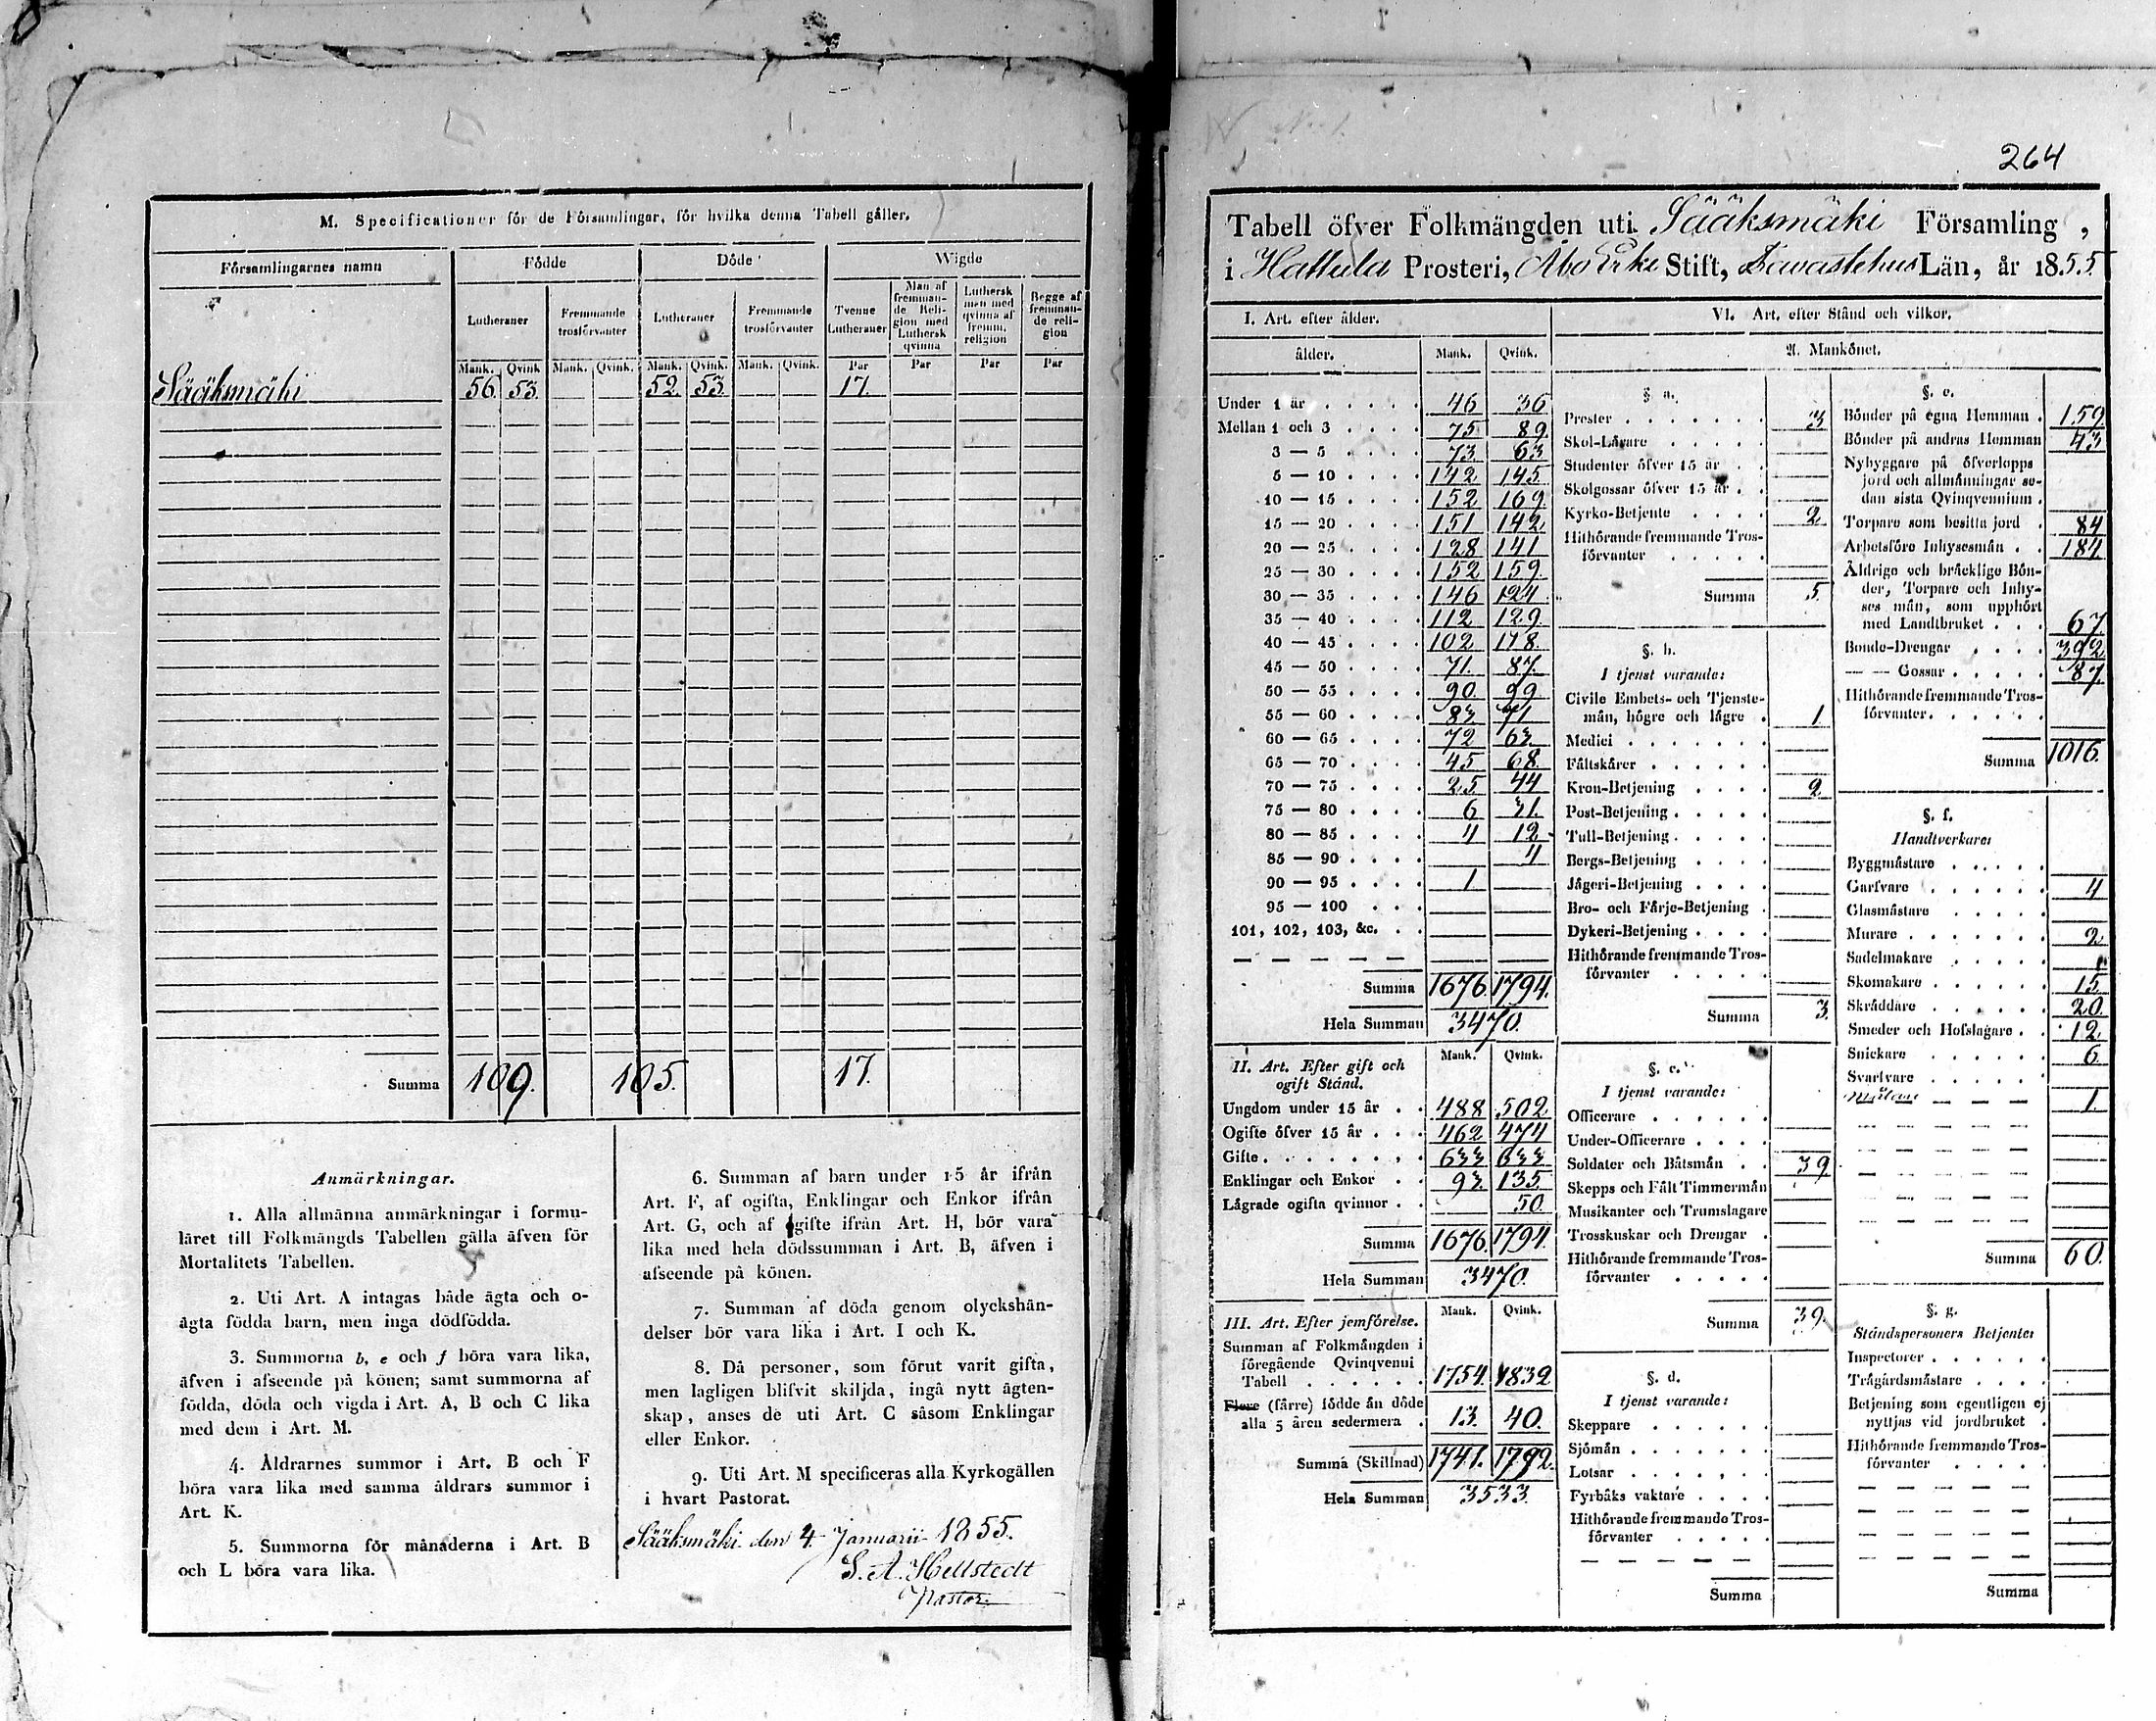 M. Specificationer för de Församlingar, för hvilka denna Tabell gäller.
Församlingarnes namn Födde Döde Wigde
Lutheraner Fremmande trosförvanter Lutheraner Fremmande trosförvanter Tvenne Lutheraner Man af fremmande Religion med Luthersk qvinna Luthersk man med qvinna af fremm. religion Begge af fremmande religion
Mank. Qvink. Mank. Qvink. Mank. Qvink. Mank. Qvink. Par Par Par Par
Sääksmäki 56. 53. 52. 53. 17.
Summa 109. 105. 17.
Anmärkningar.
1. Alla allmänna anmärkningar i formu-
läret till Folkmängds Tabellen gälla äfven för
Mortalitets Tabellen.
2. Uti Art. A intagas både ägta och o-
ägta födda barn, men inga dödfödda.
3. Summorna b, e och f böra vara lika,
äfven i afseende på könen; samt summorna af
födda, döda och vigda i Art. A, B och C lika
med dem i Art. M.
4. Åldrarnes summor i Art. B och F
böra vara lika med samma åldrars summor i
Art. K.
5. Summorna för månaderna i Art. B
och L böra vara lika.
6. Summan af barn under 15 år ifrån
Art. F, af ogifta, Enklingar och Enkor ifrån
Art. G, och af gifte ifrån Art. H, bör vara
lika med hela dödssumman i Art. B, äfven i
afseende på könen.
7. Summan af döda genom olyckshän-
delser bör vara lika i Art. I och K.
8. Då personer, som förut varit gifta,
men lagligen blifvit skiljda, ingå nytt ägten-
skap, anses de uti Art. C såsom Enklingar
eller Enkor.
9. Uti Art. M specificeras alla Kyrkogällen
i hvart Pastorat.
Sääksmäki den 4 Januarii 1855.
S. A. Hellstedt
Pastor.
264
Tabell öfver Folkmängden uti Sääksmäki Församling,
i Hattula Prosteri, Åbo Erke Stift, Tawastehus Län, år 1855.
I. Art. efter ålder.
ålder. Mank. Qvink.
Under 1 år 46 36
Mellan 1 och 3 75 89
3 — 5 73 63
5 — 10 142 145
10 — 15 152 169
15 — 20 151 142
20 — 25 128 141
25 — 30 152 159
30 — 35 146 124
35 — 40 112 129
40 — 45 102 118
45 — 50 71. 87.
50 — 55 90. 99
55 — 60 83 71
60 — 65 72 63
65 — 70 45 68.
70 — 75 25. 44
75 — 80 6 31.
80 — 85 4 12
85 — 90 4
90 — 95 1
95 — 100
101, 102, 103, &c.
Summa 1676. 1794.
Hela Summan 3470.
II. Art. Efter gift och
ogift Stånd. Mank. Qvink.
Ungdom under 15 år 488 502
Ogifte öfver 15 år 462 474
Gifte 633 633
Enklingar och Enkor 93. 135.
Lägrade ogifta qvinnor 50.
Summa 1676. 1794.
Hela Summan 3470.
III. Art. Efter jemförelse. Mank. Qvink.
Summan af Folkmängden i
föregående Qvinqvenni
Tabell 1754. 1832
Flere (färre) födde än döde
alla 5 åren sedermera 13. 40.
Summa (Skillnad) 1741. 1792.
Hela Summan 3533.
VI. Art. efter Stånd och vilkor.
A. Mankönet.
§ a.
Prester 3
Skol-Lärare
Studenter öfver 15 år
Skolgossar öfver 15 år
Kyrko-Betjente 2
Hithörande fremmande Tros-
förvanter
Summa 5.
§. b.
I tjenst varande:
Civile Embets- och Tjenste-
män, högre och lägre 1
Medici
Fältskärer
Kron-Betjening 2
Post-Betjening
Tull-Betjening
Bergs-Betjening
Jägeri-Betjening
Bro- och Färje-Betjening
Dykeri-Betjening
Hithörande fremmande Tros-
förvanter
Summa 3.
§. c.
I tjenst varande:
Officerare
Under-Officerare
Soldater och Båtsmän 39
Skepps och Fält Timmermän
Musikanter och Trumslagare
Trosskuskar och Drengar
Hithörande fremmande Tros-
förvanter
Summa 39.
§. d.
I tjenst varande:
Skeppare
Sjömän
Lotsar
Fyrbåks vaktare
Hithörande fremmande Tros-
förvanter
Summa
§. e.
Bönder på egna Hemman 159
Bönder på andras Hemman 43
Nybyggare på öfverlopps
jord och allmänningar se-
dan sista Qvinqvennium
Torpare som besitta jord 84
Arbetsföre Inhysesmän 184
Åldrige och bräcklige Bön-
der, Torpare och Inhy-
ses män, som upphört
med Landtbruket 67
Bonde-Drengar 392
— — Gossar 87
Hithörande fremmande Tros-
förvanter
Summa 1016.
§. f.
Handtverkare:
Byggmästare
Garfvare 4
Glasmästare
Murare 2
Sadelmakare
Skomakare 15
Skräddare 20.
Smeder och Hofslagare 12
Snickare 6
Svarfvare
Målare 1.
Summa 60.
§. g.
Ståndspersoners Betjente:
Inspectorer
Trägårdsmästare
Betjening som egentligen ej
nyttjas vid jordbruket
Hithörande fremmande Tros-
förvanter
Summa